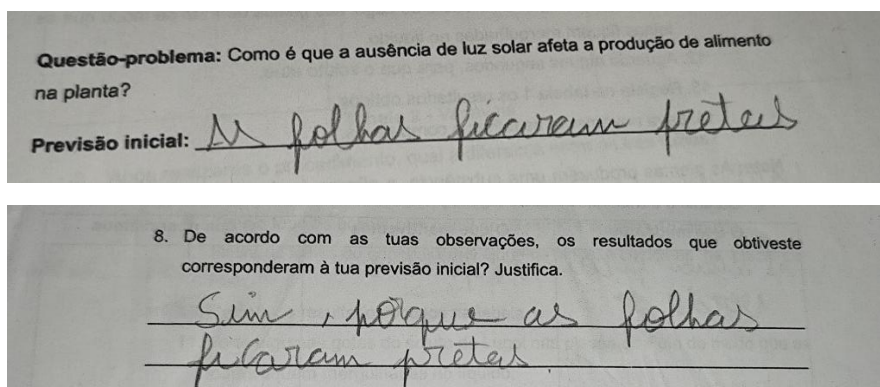 Questão-problema: Como é que a ausência de luz solar afeta a produção de alimento
na planta?
Previsão inicial: As folhas ficaram pretas
8. De acordo com as tuas observações, os resultados que obtiveste
corresponderam à tua previsão inicial? Justifica.
Sim, porque as folhas
ficaram pretas